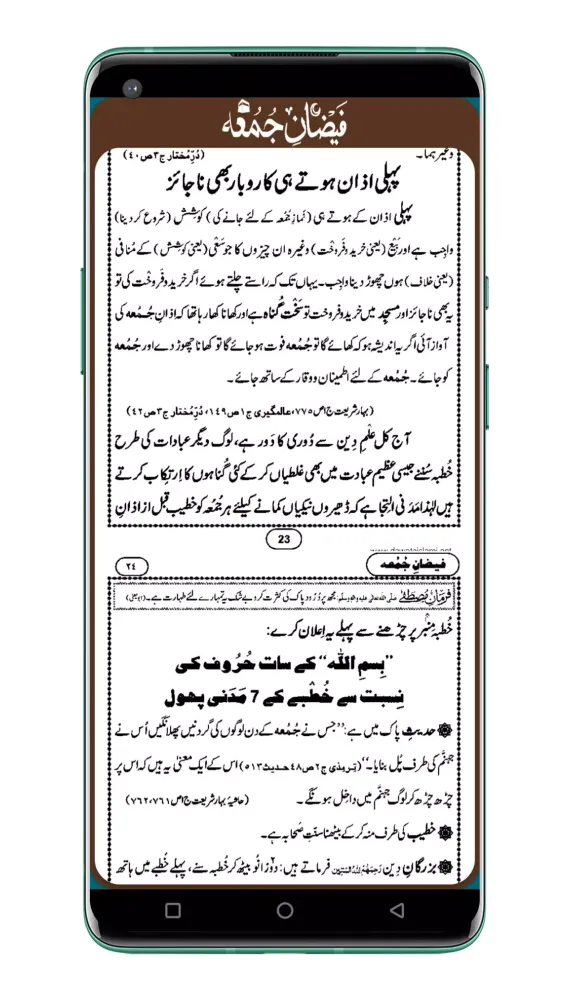 فیضانِ جُمُعہ
وغیرہما۔ (دُرِّمُختار ج۳ص۴۰)
پہلی اذان ہوتے ہی کاروبار بھی ناجائز
پہلی اذان کے ہوتے ہی (نَمازِ جُمُعہ کے لئے جانے کی) کوشِش (شروع کردینا)
واجب ہے اور بَیع (یعنی خرید وفَروخْت) وغیرہ ان چیزوں کا جو سَعْی (یعنی کوشِش) کے مُنافی
(یعنی خلاف) ہوں چھوڑ دینا واجِب۔ یہاں تک کہ راستے چلتے ہوئے اگر خرید وفَروخْت کی تو
یہ بھی ناجائز اور مسجِد میں خرید وفروخت تو سخْت گُناہ ہے اور کھانا کھا رہا تھا کہ اذانِ جُمُعہ کی
آواز آئی اگر یہ اندیشہ ہو کہ کھائے گا تو جُمُعہ فوت ہو جائے گا تو کھانا چھوڑ دے اور جُمُعہ
کو جائے۔ جُمُعہ کے لئے اطمینان ووقار کے ساتھ جائے۔
(بہارِ شریعت ج۱ص۷۷۵، عالمگیری ج۱ص۱۴۹، دُرِّمُختار ج۳ص۴۲)
آج کل عِلْمِ دین سے دُوری کا دَور ہے، لوگ دیگر عبادات کی طرح
خُطبہ سُننے جیسی عظیم عبادت میں بھی غلطیاں کرکے کئی گُناہوں کا اِرتِکاب کرتے
ہیں لہٰذا مَدَنی التجا ہے کہ ڈھیروں نیکیاں کمانے کیلئے ہر جُمُعہ کو خطیب قبل از اذانِ
23
www.dawateislami.net
فیضانِ جُمُعہ
۲۴
فرمانِ مصطَفٰے صلی اللہ تعالیٰ علیہ والہ وسلم: مجھ پر دُرُود پاک کی کثرت کرو بے شک یہ تمہارے لئے طہارت ہے۔ (ابو یعلی)
خُطبہ مِنبر پر چڑھنے سے پہلے یہ اِعلان کرے:
”بِسمِ اللہ“ کے سات حُرُوف کی
نِسبت سے خُطبے کے 7 مَدَنی پھول
حدیثِ پاک میں ہے: ”جس نے جُمُعہ کے دن لوگوں کی گردنیں پھلانگیں اُس نے
جہنَّم کی طرف پُل بنایا۔“ (تِرمِذی ج۲ص۴۸حدیث۵۱۳) اس کے ایک معنٰی یہ ہیں کہ اس پر
چڑھ چڑھ کر لوگ جہنَّم میں داخِل ہونگے۔ (حاشیۂ بہارِ شریعت ج۱ص۷۶۱،۷۶۲)
خطیب کی طرف منہ کر کے بیٹھنا سنّتِ صَحابہ ہے۔
بزرگانِ دین رَحِمَهُمُ اللهُ الْمُبِين فرماتے ہیں: دوزانو بیٹھ کر خُطبہ سنے، پہلے خُطبے میں ہاتھ